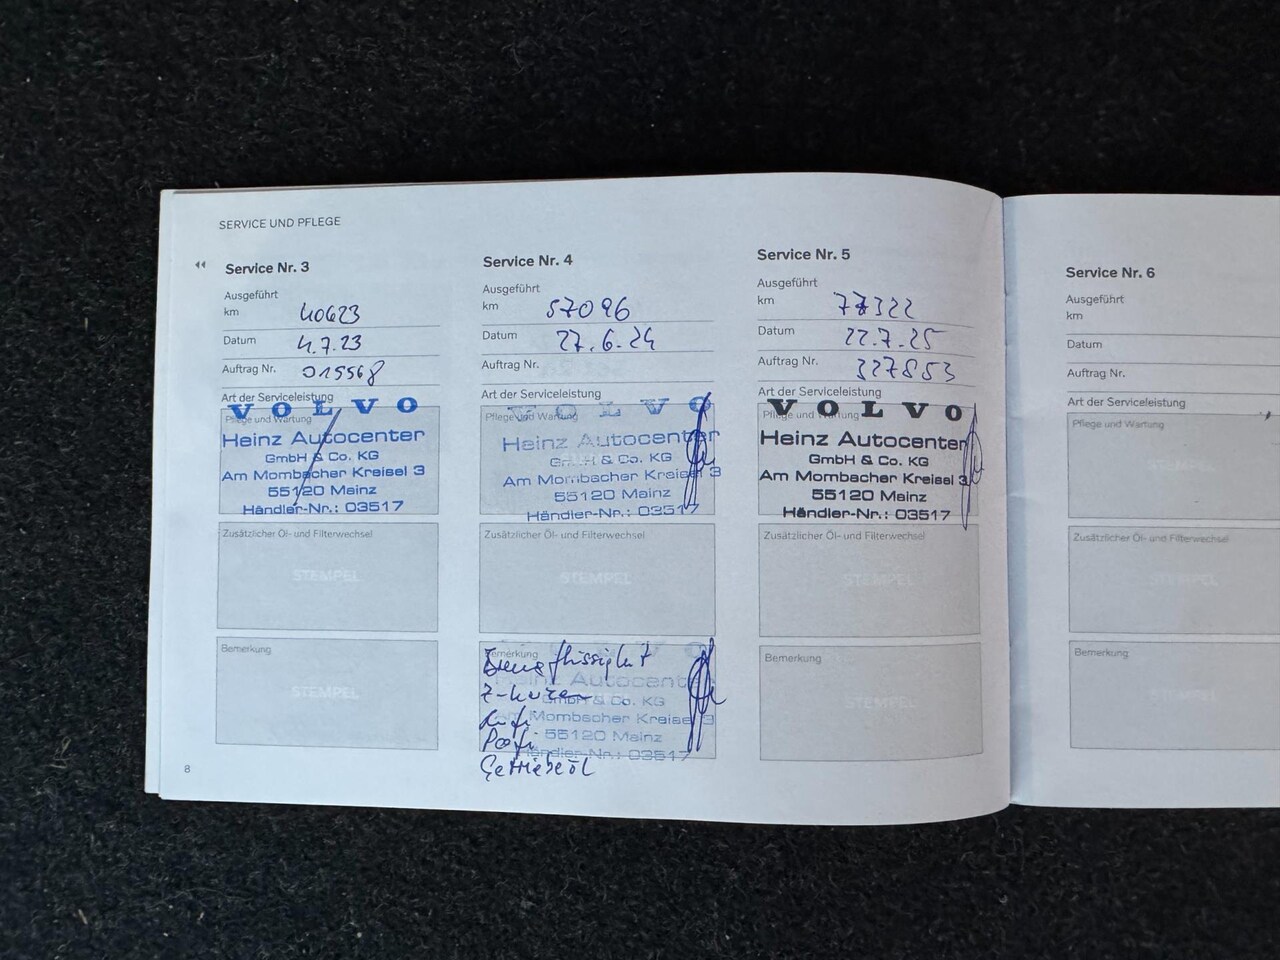 SERVICE UND PFLEGE
Service Nr. 3
Ausgeführt
km 40623
Datum 4.7.23
Auftrag Nr. 015568
Art der Serviceleistung
Pflege und Wartung
VOLVO
Heinz Autocenter
GmbH & Co. KG
Am Mombacher Kreisel 3
55120 Mainz
Händler-Nr.: 03517
Zusätzlicher Öl- und Filterwechsel
STEMPEL
Bemerkung
STEMPEL
8
Service Nr. 4
Ausgeführt
km 57096
Datum 27.6.24
Auftrag Nr.
Art der Serviceleistung
Pflege und Wartung
VOLVO
Heinz Autocenter
GmbH & Co. KG
Am Mombacher Kreisel 3
55120 Mainz
Händler-Nr.: 03517
Zusätzlicher Öl- und Filterwechsel
STEMPEL
Bemerkung
Bremsflüssigkeit
Heinz Autocenter
GmbH & Co. KG
Am Mombacher Kreisel 3
55120 Mainz
Händler-Nr.: 03517
Getriebeöl
Service Nr. 5
Ausgeführt
km 77322
Datum 22.7.25
Auftrag Nr. 327853
Art der Serviceleistung
Pflege und Wartung
VOLVO
Heinz Autocenter
GmbH & Co. KG
Am Mombacher Kreisel 3
55120 Mainz
Händler-Nr.: 03517
Zusätzlicher Öl- und Filterwechsel
STEMPEL
Bemerkung
STEMPEL
Service Nr. 6
Ausgeführt
km
Datum
Auftrag Nr.
Art der Serviceleistung
Pflege und Wartung
STEMPEL
Zusätzlicher Öl- und Filterwechsel
STEMPEL
Bemerkung
STEMPEL